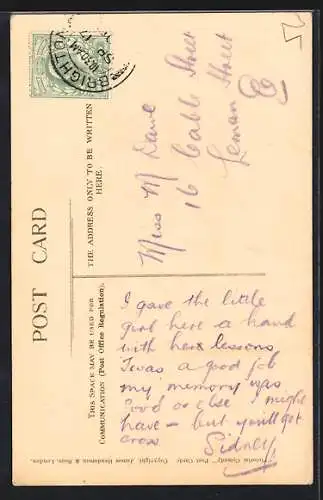 BRIGHTON
10.30AM
SP 17
POST CARD
THE ADDRESS ONLY TO BE WRITTEN
HERE.
THIS SPACE MAY BE USED FOR
COMMUNICATION (Post Office Regulation).
Miss M
16 Cable Street
Leman Street
E
I gave the little
girl here a hand
with her lessons
Twas a good job
my memory was
good or else I might
have — but you'll get
cross
Sidney
Post Cards Copyright, James Henderson & Sons, London.